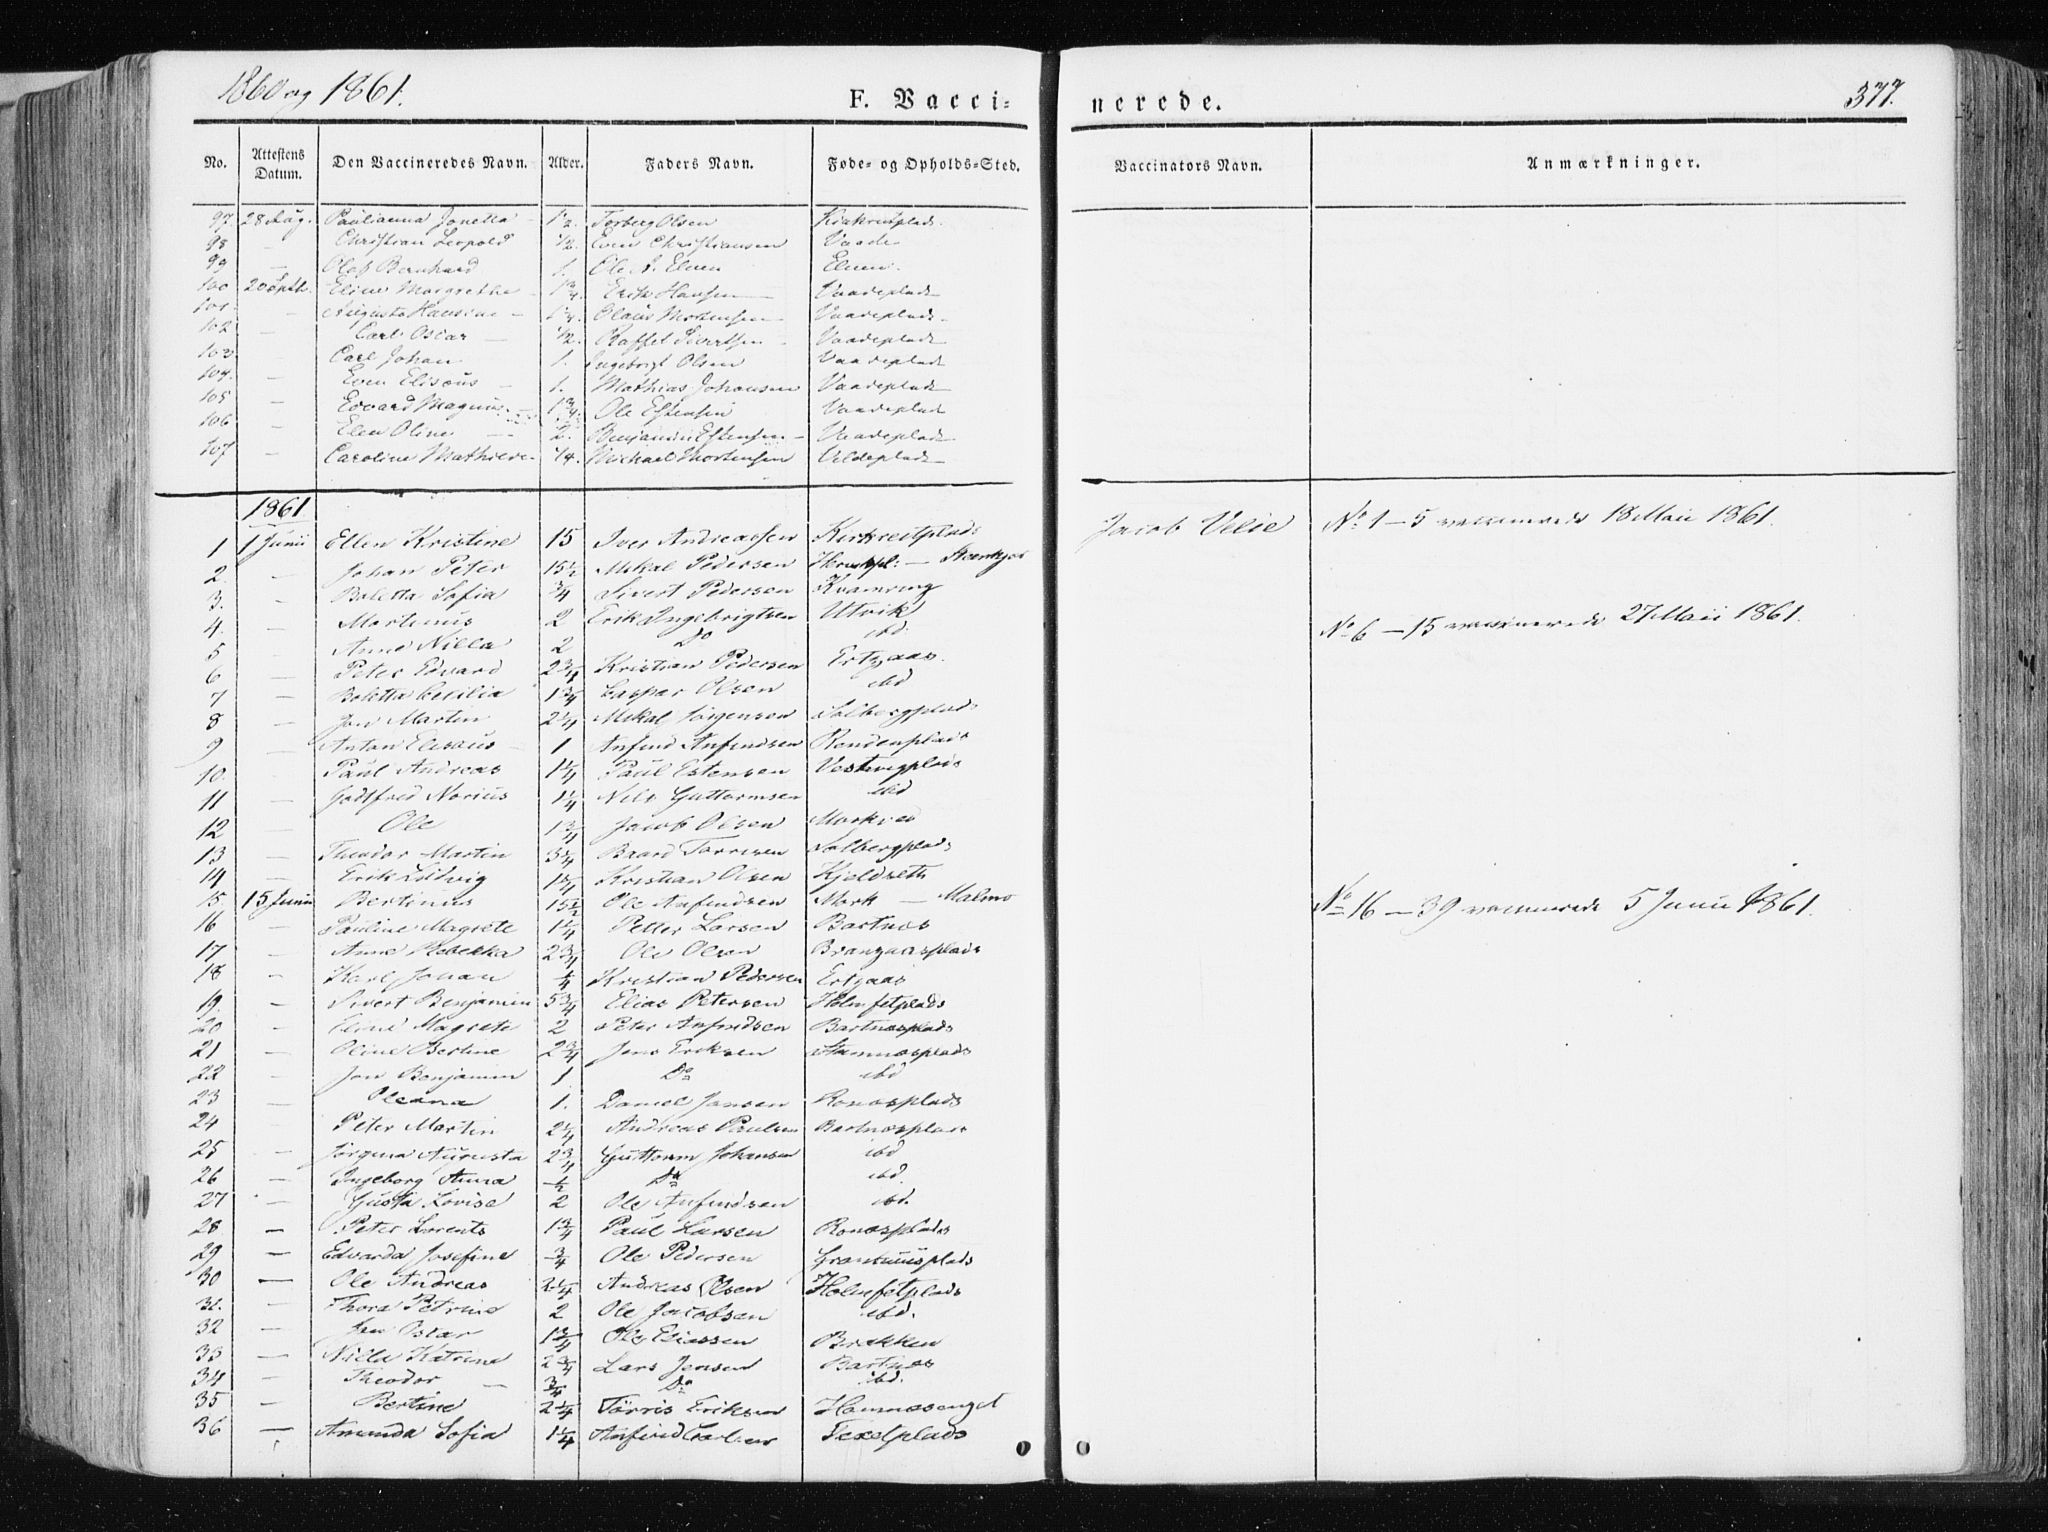 1860 og 1861.
F. Vacci=
nerede.
377.
No. Attestens Datum. Den Vaccineredes Navn. Alder. Faders Navn. Føde= og Opholds=Sted. Vaccinators Navn. Anmærkninger.
97. 28 Aug. Paulianna Jonetta 1/2. Torberg Olsen
98 — Christian Leopold 1/2. Even Christiansen Vaade
99 — Olaf Bernhard 1. Ole A. Elven Elven.
100 20 Sptb. Eline Margrethe 1 3/4 Erik Hansen Vaadeplads
101 Augusta Hansine Olaus Mortensen Vaadeplads
102 — Carl Oscar 1/2. Raffel Sivertsen Vaadeplads
103 Carl Johan 1. Ingebrigt Olsen Vaadeplads
104. — Even Elisæus 1. Mathias Johansen Vaadeplads
105 — Edvard Magnus 1 3/4 Ole Estensen Vaadeplads
106 — Elen Oline 2. Benjamin Estensen Vaadeplads
107 — Caroline Mathilde 1/4. Michael Mortensen Veldeplads
1861
1 1 Junii Ellen Kristine 15 Iver Andreassen Kirkreitplads Jacob Velie No 1 — 5 vaccinerede 18 Maii 1861.
2. — Johan Peter 15 1/2 Mikal Pedersen
3. — Boletta Sofia 3/4 Sivert Pedersen Kvamring
4. — Martinus 2 Erik Ingebrigtsen Utvik No 6 — 15 vaccinerede 27 Maii 1861.
5 — Anne Nilla 2 Do ibd.
6 — Peter Edvard 2 3/4 Kristian Pedersen Ertzaas
7 — Boletta Cecilia 1 3/4 Caspar Olsen ibd
8 — Jon Martin 2 1/4 Mikal Jørgensen Solbergplads
9 — Anton Elisæus 1 Anfind Anfindsen
10. — Paul Andreas 1 1/4 Paul Estensen Vestvigplads
11 — Godtfred Norius 1 1/4 Nils Guttormsen ibd
12 — Ole 1 3/4 Jacob Olsen Morkved
13 — Theodor Martin 3 1/4 Baard Torrisen Solbergplads
14 — Erik Ludvig 1 1/4 Kristian Olsen Kjeldseth
15. 15 Junii Bertinus 15 1/2 Ole Anfindsen Mork — Malmo No 16 — 39 vaccinerede 5 Junii 1861.
16 — Pauline Magrete 1 1/4 Petter Larsen Bartnes
17 — Anne Rebekka 2 3/4 Ole Olsen Brandzaasplads
18 — Karl Johan 1/4 Kristian Pedersen Ertzaas
19. — Sivert Benjamin 5 3/4 Elias Petersen Holmfetplads
20 — Eline Magrete 2 Peter Anfindsen Bartnesplads
21 — Oline Bertine 2 3/4 Jens Eriksen Stamnesplads
22 — Jon Benjamin 1 Do ibd
23 — Oleana 1. Daniel Jansen Ronesplads
24 — Peter Martin 2 1/4 Andreas Paulsen Bartnesplads
25 — Jørgina Augusta 2 3/4 Guttorm Johansen ibd
26 — Ingeborg Anna 1/2 Do ibd.
27 — Gusta Lovise 2 Ole Anfindsen ibd.
28 — Peter Lorents 1 3/4 Paul Larsen Ronesplads
29 — Edvarda Josefine 3/4 Ole Pedersen
30 — Ole Andreas 2 1/4 Andreas Olsen Holmfetplads
31. — Thora Petrine 2 Ole Jacobsen ibd.
32 — Jon Oskar 1 3/4 Ole Eliassen Brækken
33 — Nilla Katrine 2 3/4 Lars Jensen Bartnes
34 — Theodor 3/4 Do ibd.
35 — Bertine 2 1/4 Torris Eriksen Hamnesenget
36 — Amanda Sofia 1 1/4 Anfind Carlsen